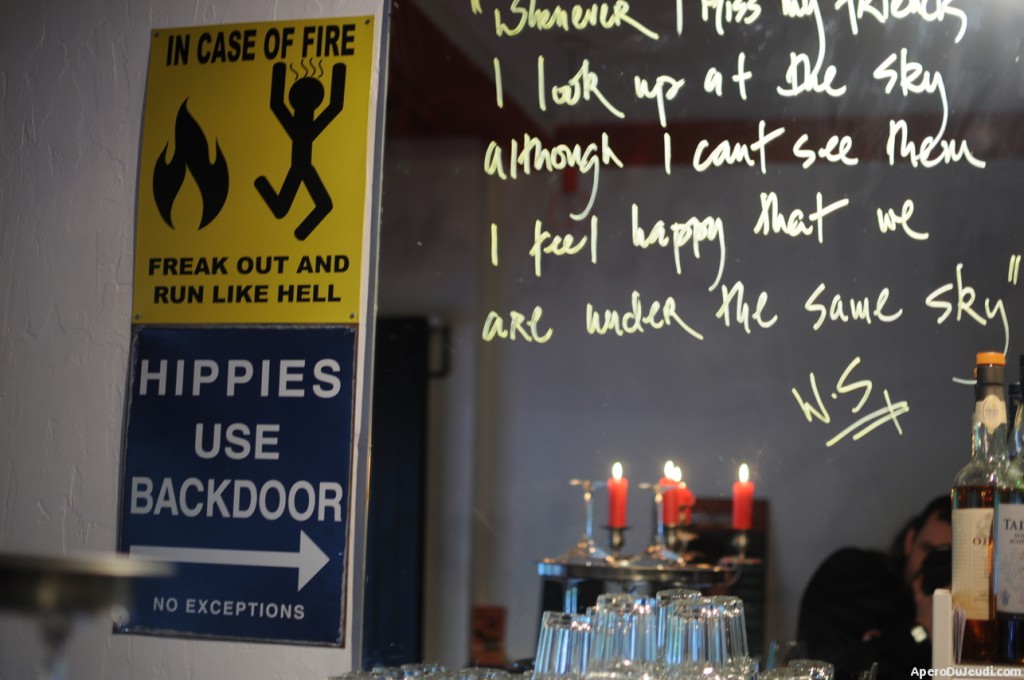 IN CASE OF FIRE
FREAK OUT AND
RUN LIKE HELL
HIPPIES
USE
BACKDOOR
NO EXCEPTIONS
"Whenever I Miss my friends
I look up at the sky
although I cant see them
I feel happy that we
are under the same sky"
W.S
TAL
AperoDuJeudi.com